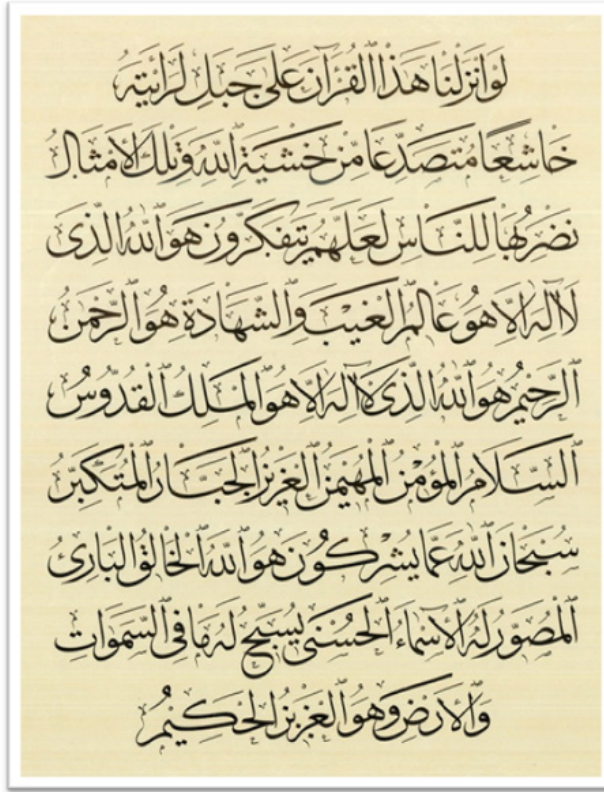 لَوْ اَنْزَلْنَا هٰذَا الْقُرْاٰنَ عَلٰى جَبَلٍ لَرَاَيْتَهُ
خَاشِعًا مُتَصَدِّعًا مِنْ خَشْيَةِ اللّٰهِ وَتِلْكَ الْاَمْثَالُ
نَضْرِبُهَا لِلنَّاسِ لَعَلَّهُمْ يَتَفَكَّرُونَ هُوَ اللّٰهُ الَّذِى
لَا اِلٰهَ اِلَّا هُوَ عَالِمُ الْغَيْبِ وَالشَّهَادَةِ هُوَ الرَّحْمٰنُ
الرَّحِيمُ هُوَ اللّٰهُ الَّذِى لَا اِلٰهَ اِلَّا هُوَ الْمَلِكُ الْقُدُّوسُ
السَّلَامُ الْمُؤْمِنُ الْمُهَيْمِنُ الْعَزِيزُ الْجَبَّارُ الْمُتَكَبِّرُ
سُبْحَانَ اللّٰهِ عَمَّا يُشْرِكُونَ هُوَ اللّٰهُ الْخَالِقُ الْبَارِئُ
الْمُصَوِّرُ لَهُ الْاَسْمَاءُ الْحُسْنٰى يُسَبِّحُ لَهُ مَا فِى السَّمٰوَاتِ
وَالْاَرْضِ وَهُوَ الْعَزِيزُ الْحَكِيمُ